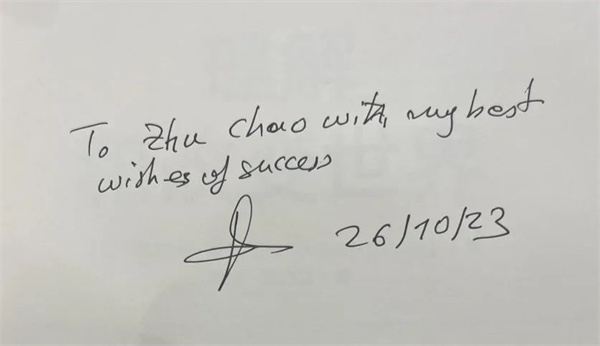 To Zhu Chao with my best
wishes of success
26/10/23